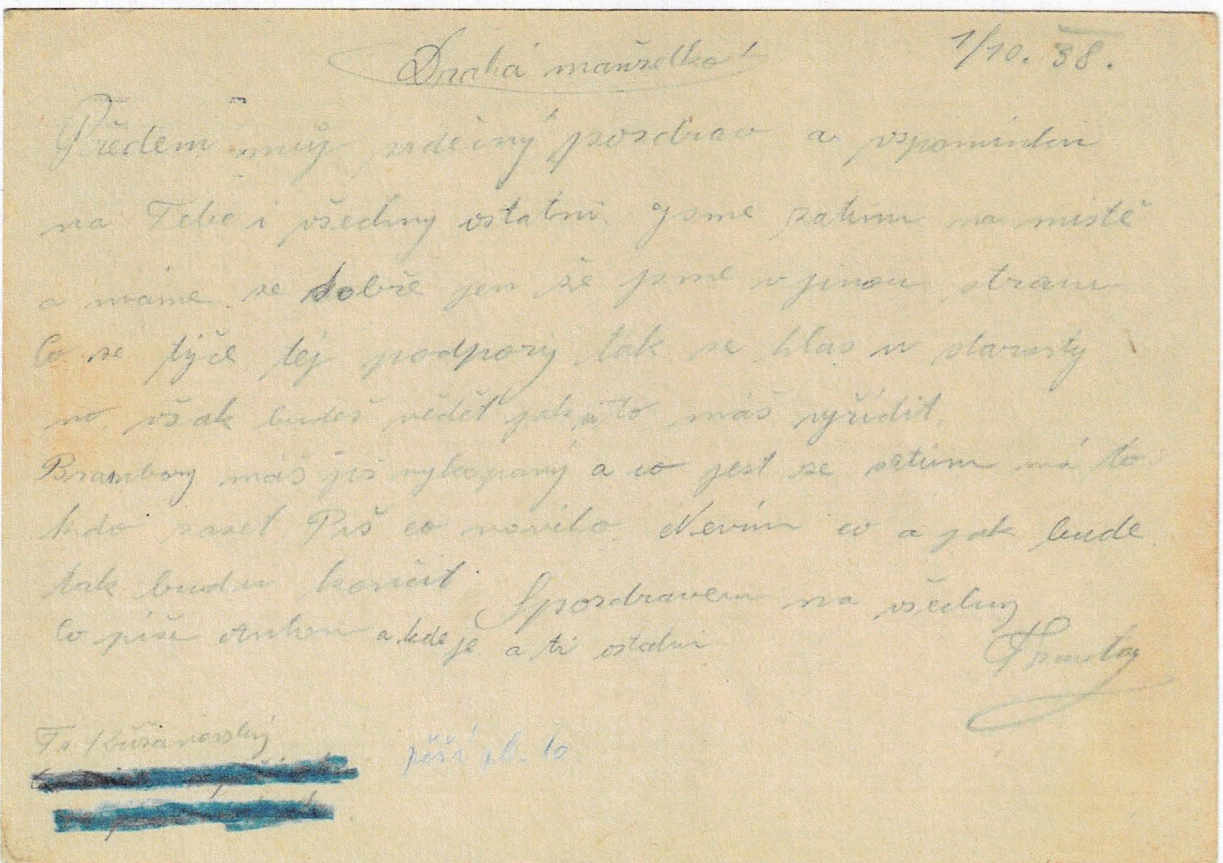 1/10. 38.
Drahá manželko!
Předem můj srdečný pozdrav a vzpomínku
na Tebe i všechny ostatní. Jsme zatím na místě
a máme se dobře jen že jsme v jinou stranu
Co se týče tej podpory tak se hlas u starosty
no však budeš vědět jak to máš vyřídit.
Brambory máš již vykopaný a co jest se setím má to
kdo zaset Piš co nového. Nevím co a jak bude
tak budu končit. Spozdravem na všechny
Co píše Anton a kde je a ti ostatní
Fr.